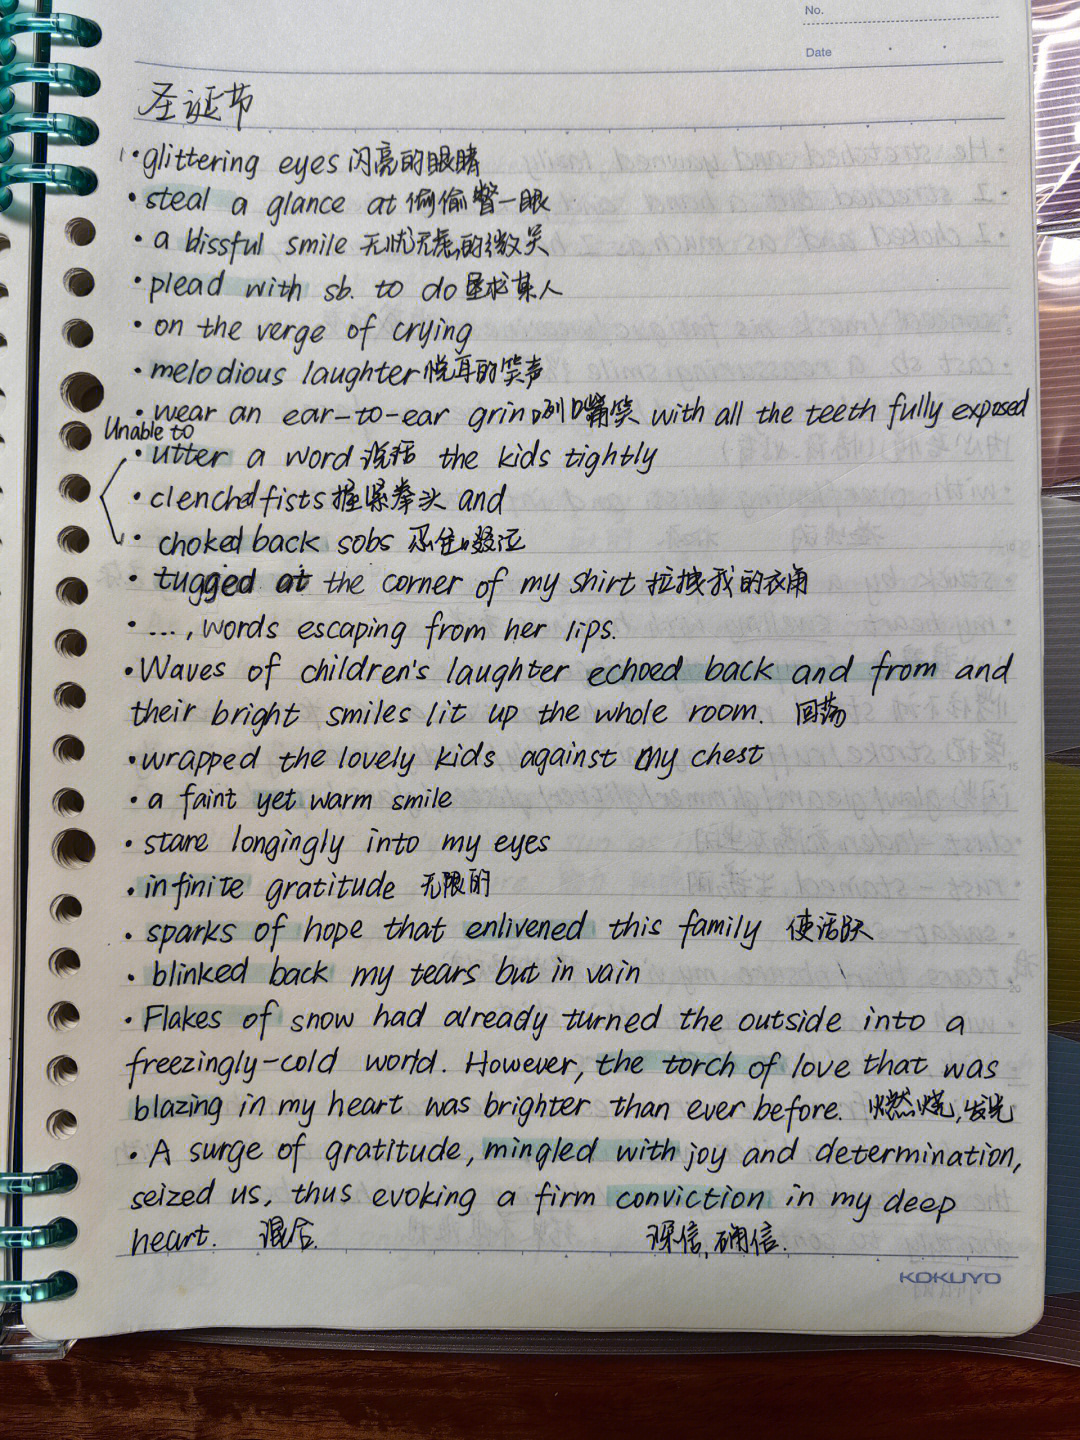 No.
Date
圣诞节
·glittering eyes 闪亮的眼睛
·steal a glance at 偷偷瞥一眼
·a blissful smile 无忧无虑的微笑
·plead with sb. to do 恳求某人
·on the verge of crying
·melodious laughter 悦耳的笑声
·wear an ear-to-ear grin 咧嘴笑 with all the teeth fully exposed
Unable to
·utter a word 说话 the kids tightly
·clenched fists 握紧拳头 and
·choked back sobs 忍住啜泣
·tugged at the corner of my shirt 拉拽我的衣角
·..., words escaping from her lips.
·Waves of children's laughter echoed back and from and
their bright smiles lit up the whole room. 回荡
·wrapped the lovely kids against my chest
·a faint yet warm smile
·stare longingly into my eyes
·infinite gratitude 无限的
·sparks of hope that enlivened this family 使活跃
·blinked back my tears but in vain
·Flakes of snow had already turned the outside into a
freezingly-cold world. However, the torch of love that was
blazing in my heart was brighter than ever before. 燃烧,发光
·A surge of gratitude, mingled with joy and determination,
seized us, thus evoking a firm conviction in my deep
heart. 混合. 深信,确信.
KOKUYO